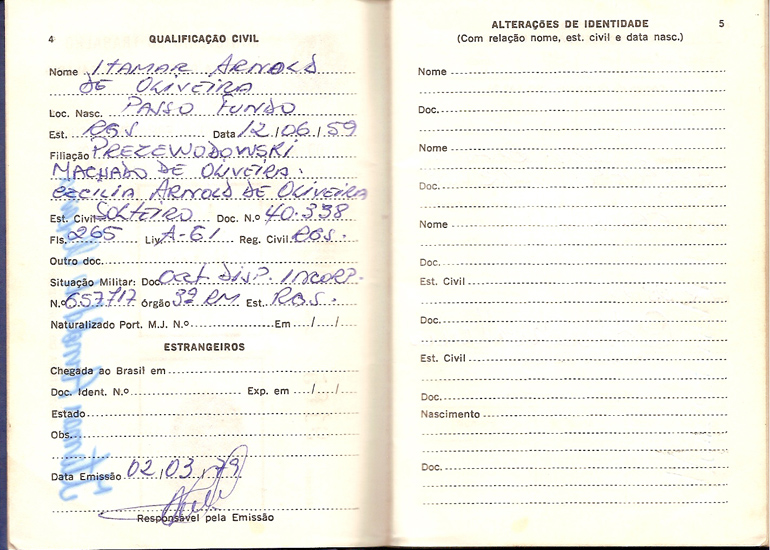 4
QUALIFICAÇÃO CIVIL
Nome ITAMAR ARNOLD
DE OLIVEIRA
Loc. Nasc. PASSO FUNDO
Est. RGS Data 12/06/59
Filiação PREZEWODOWSKI
MACHADO DE OLIVEIRA.
CECILIA ARNOLD DE OLIVEIRA
Est. Civil SOLTEIRO Doc. N.º 40.338
Fls. 265 Liv. A-61 Reg. Civil RGS.
Outro doc.
Situação Militar: Doc. Cert DISP. INCORP.
N.º 657717 órgão 3ª RM Est. RGS.
Naturalizado Port. M.J. N.º Em / /
ESTRANGEIROS
Chegada ao Brasil em
Doc. Ident. N.º Exp. em / /
Estado
Obs.
Data Emissão 02,03,79
Responsável pela Emissão
ALTERAÇÕES DE IDENTIDADE 5
(Com relação nome, est. civil e data nasc.)
Nome
Doc.
Nome
Doc.
Nome
Doc.
Est. Civil
Doc.
Est. Civil
Doc.
Nascimento
Doc.